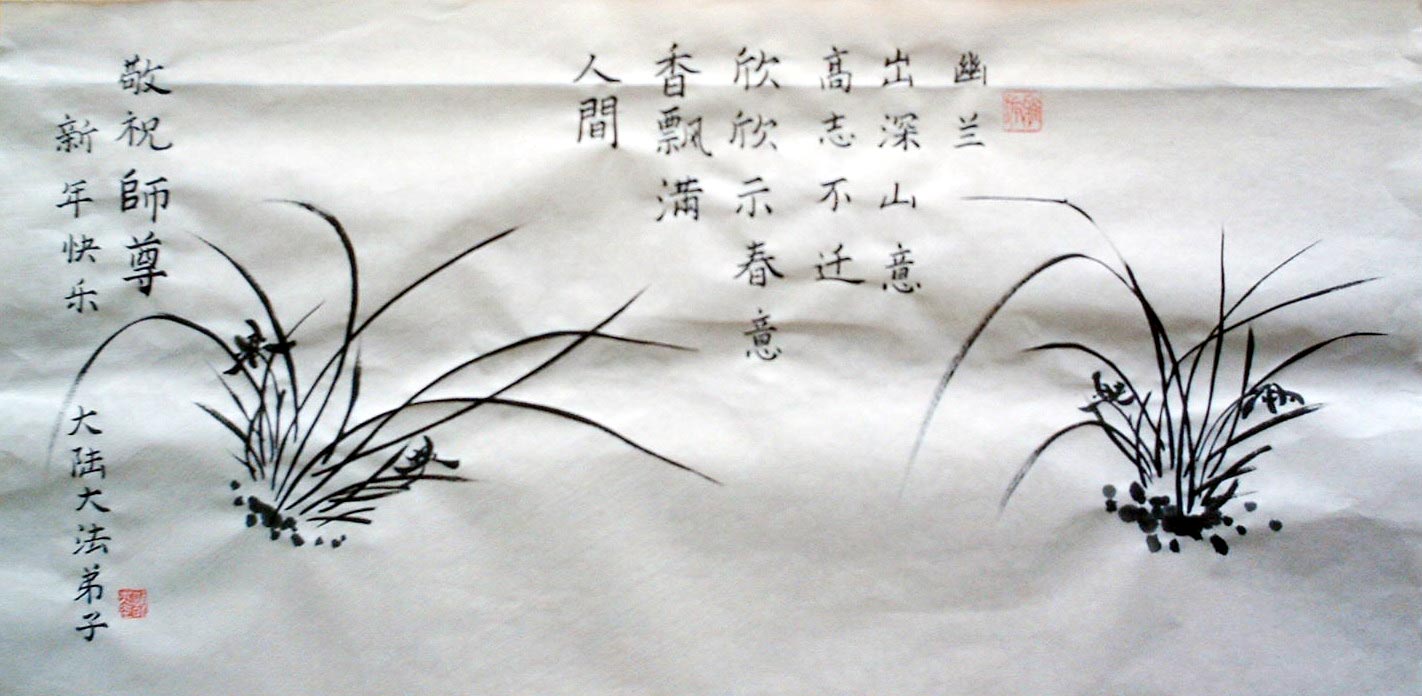 幽兰
出深山意
高志不迁
欣欣示春意
香飘满
人間
敬祝師尊
新年快乐
大陆大法弟子